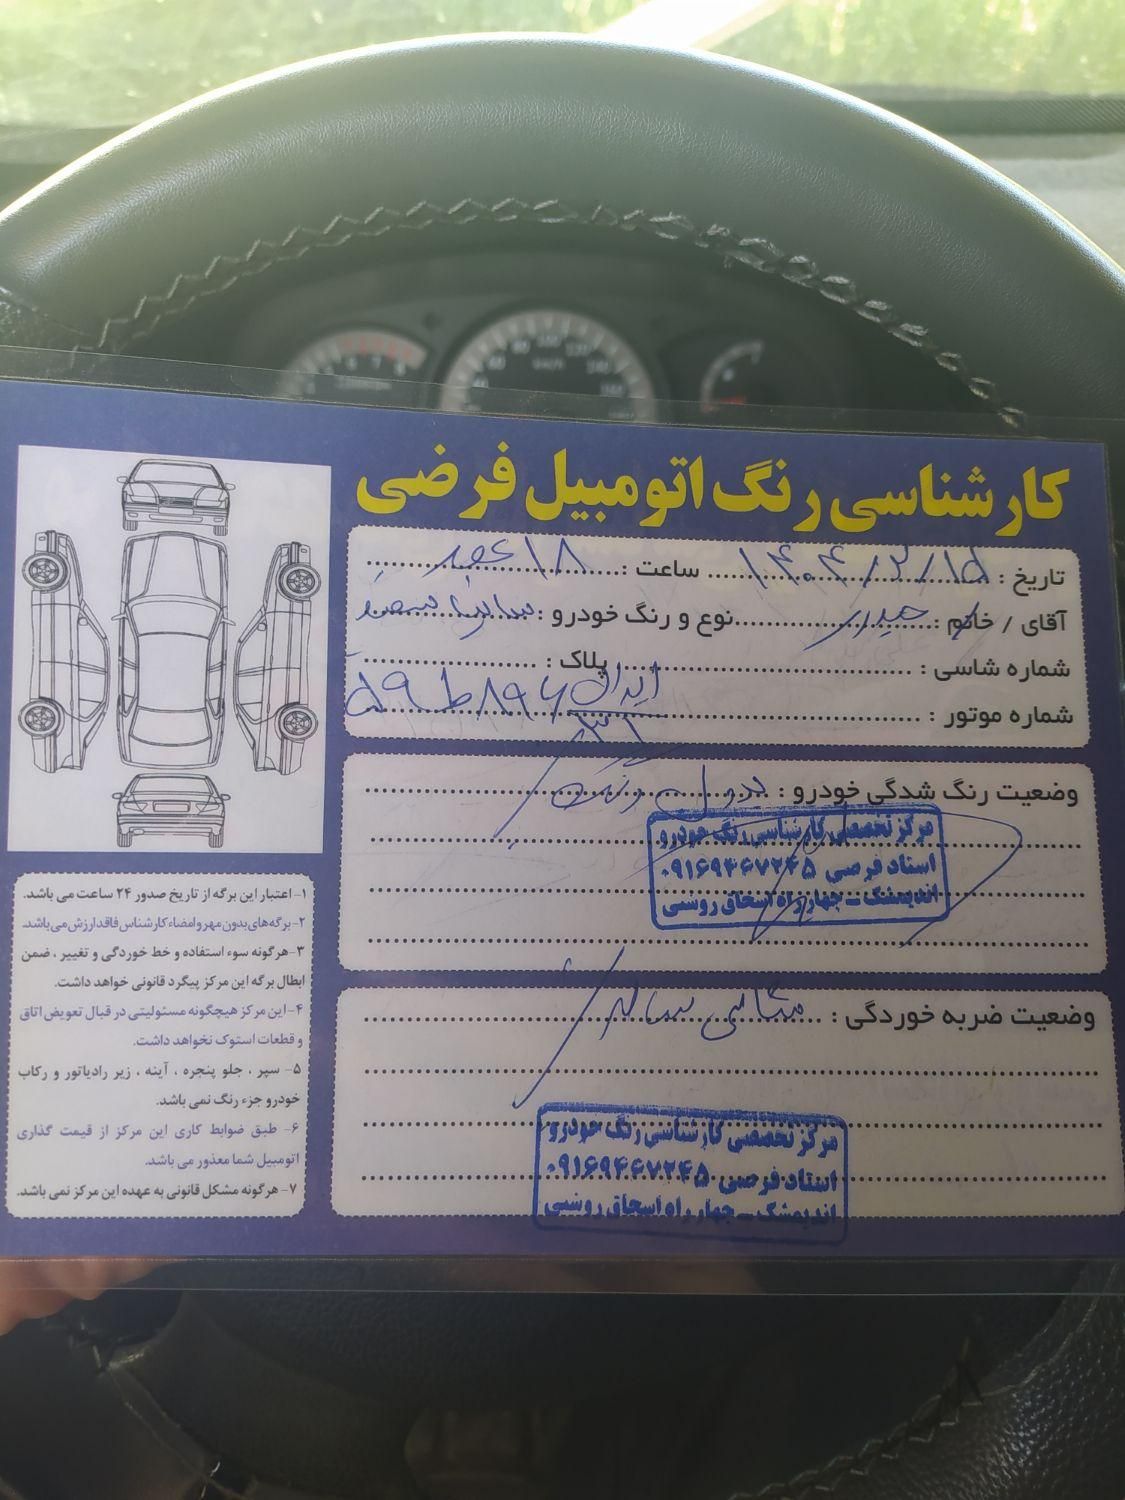 کارشناسی رنگ اتومبیل فرضی
تاریخ : ۱۴۰۴/۲/۱۵ ساعت : ۱۸ عصر
آقای / خانم : حیدری نوع و رنگ خودرو : ساینا سفید
شماره شاسی : پلاک :
شماره موتور : ۵۹ ط ۸۹۶ ایران
وضعیت رنگ شدگی خودرو : بدون رنگ
مرکز تخصصی کارشناسی رنگ خودرو
استاد فرضی ۰۹۱۶۹۴۶۷۲۴۵
اندیمشک - چهار راه اسحاق روشنی
وضعیت ضربه خوردگی : شاسی سالم
مرکز تخصصی کارشناسی رنگ خودرو
استاد فرضی ۰۹۱۶۹۴۶۷۲۴۵
اندیمشک - چهار راه اسحاق روشنی
۱- اعتبار این برگه از تاریخ صدور ۲۴ ساعت می باشد.
۲- برگه های بدون مهر و امضاء کارشناس فاقد ارزش می باشد.
۳- هرگونه سوء استفاده و خط خوردگی و تغییر ، ضمن
ابطال برگه این مرکز پیگرد قانونی خواهد داشت.
۴- این مرکز هیچگونه مسئولیتی در قبال تعویض اتاق
و قطعات استوک نخواهد داشت.
۵- سپر ، جلو پنجره ، آینه ، زیر رادیاتور و رکاب
خودرو جزء رنگ نمی باشد.
۶- طبق ضوابط کاری این مرکز از قیمت گذاری
اتومبیل شما معذور می باشد.
۷- هرگونه مشکل قانونی به عهده این مرکز نمی باشد.